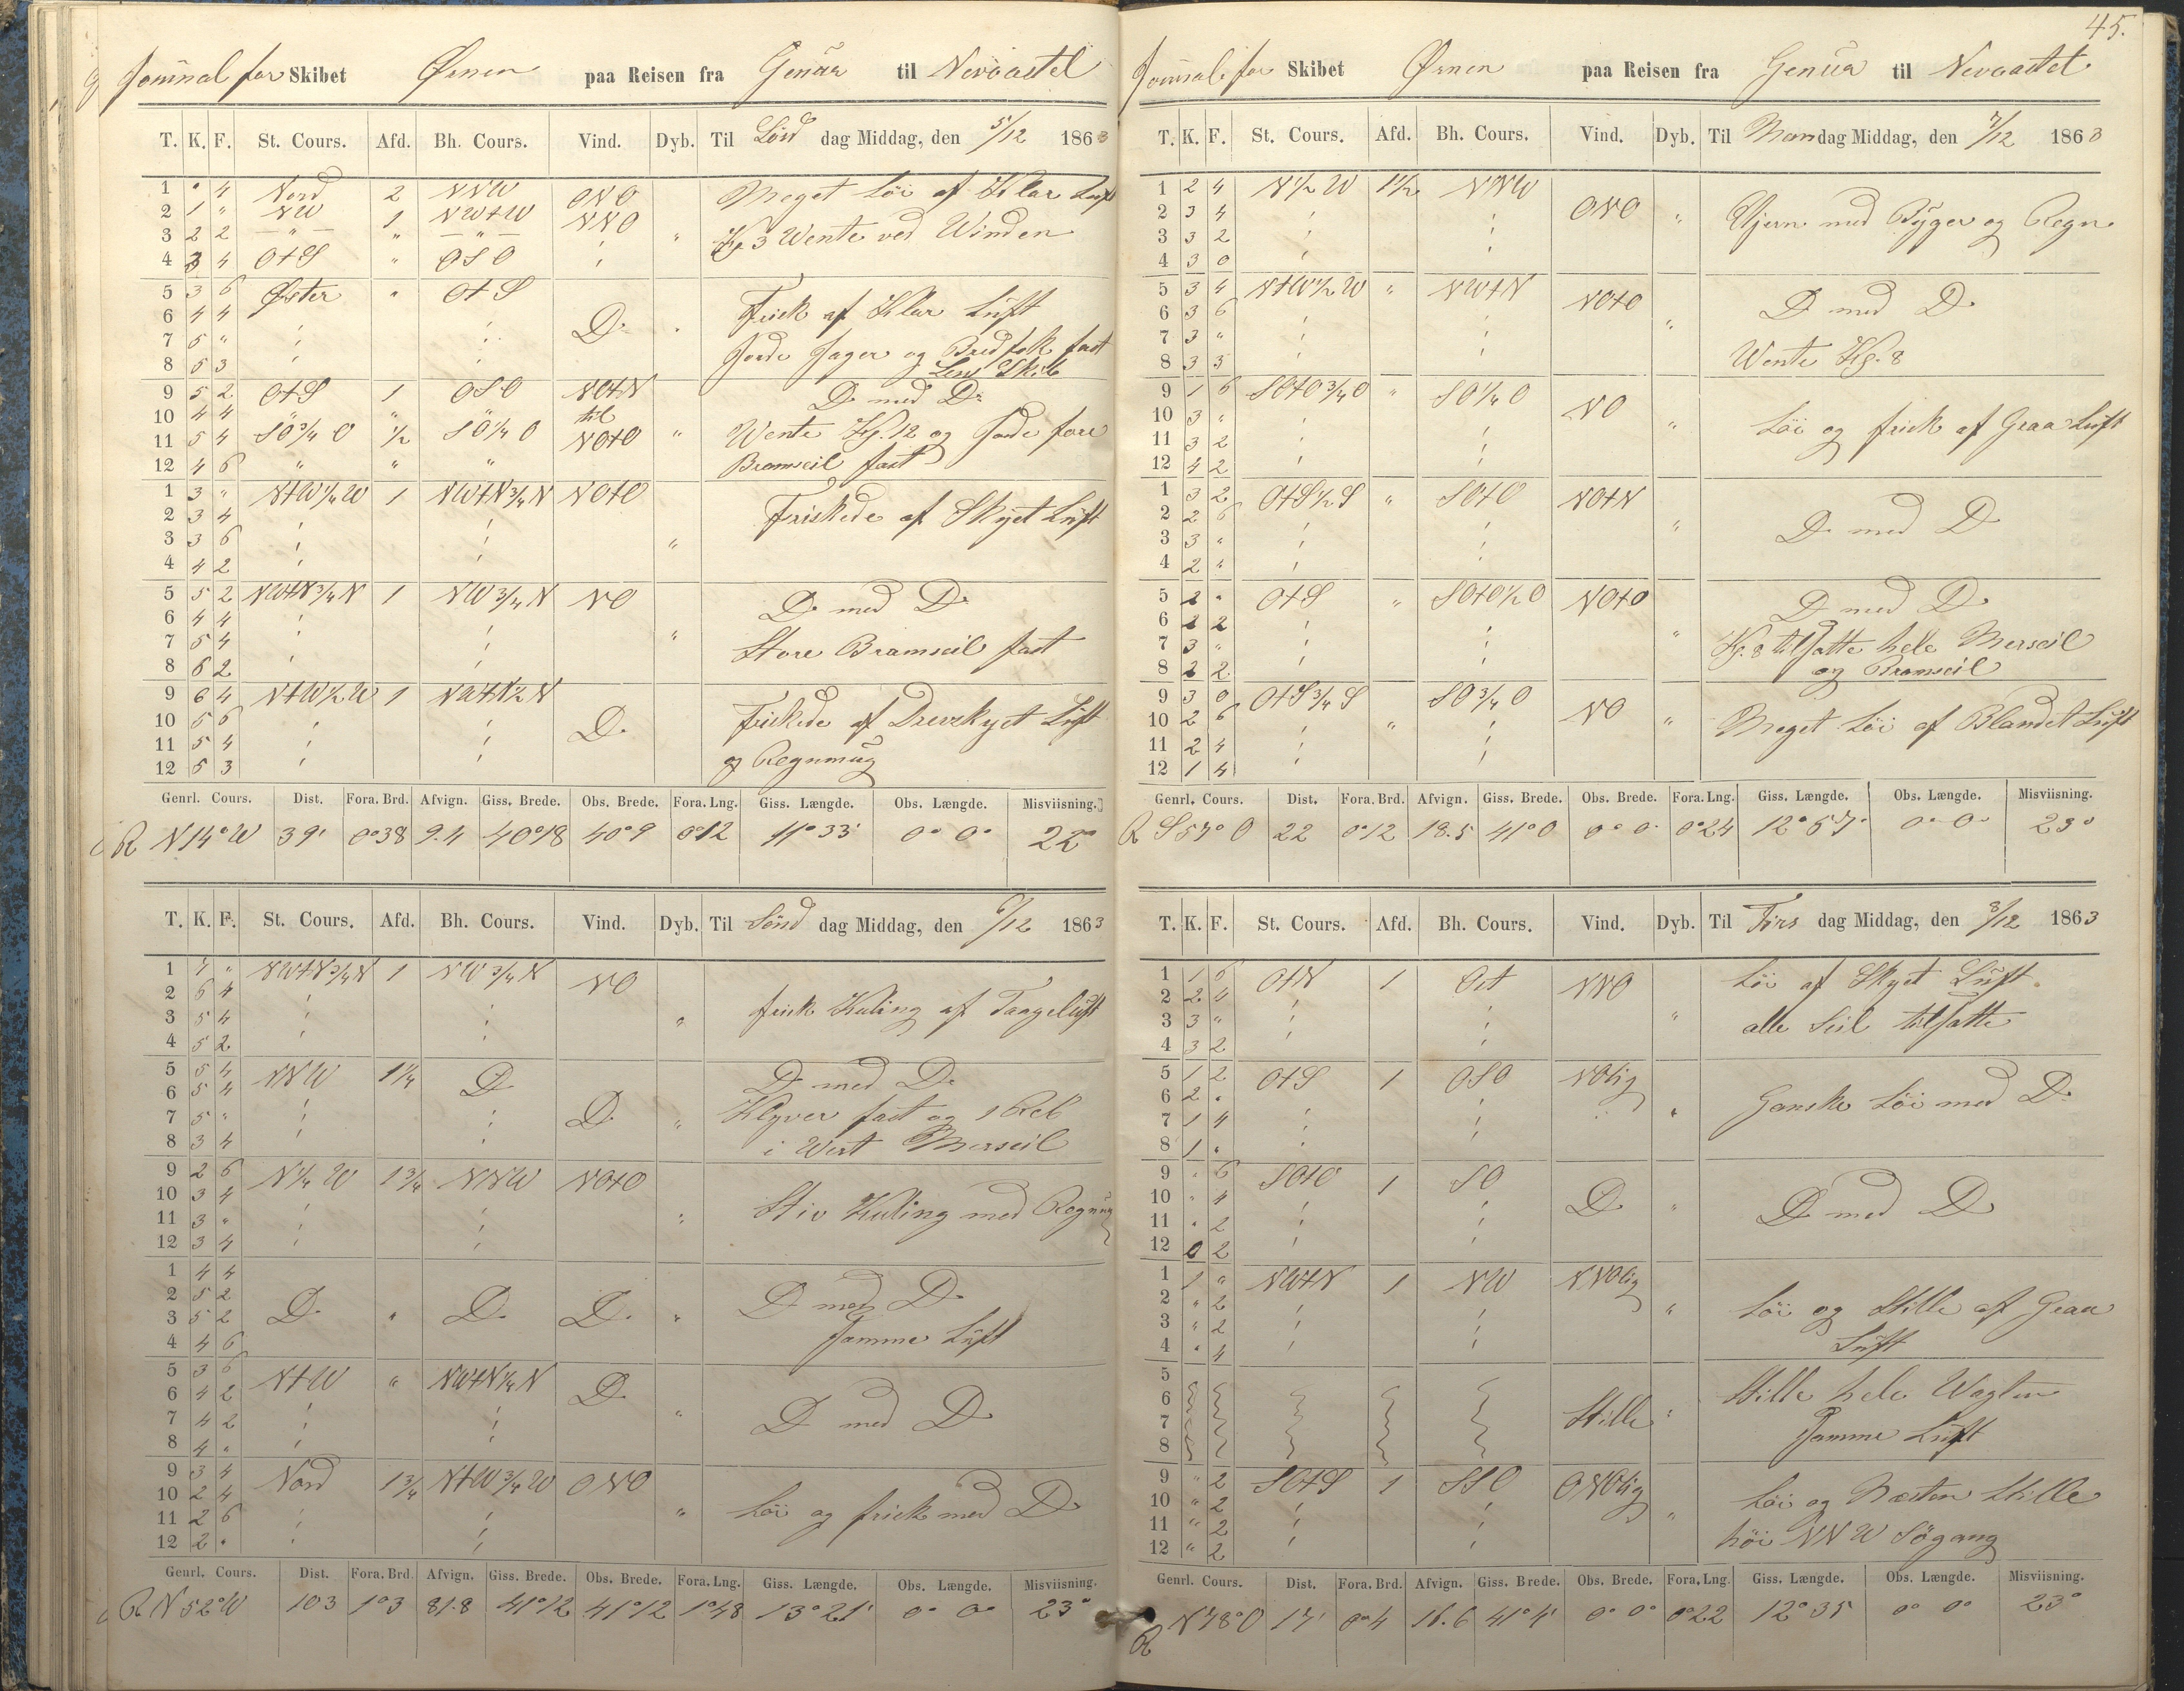 Journal for Skibet Ørnen paa Reisen fra Genua til Newcastel
T. K. F. St. Cours. Afd. Bh. Cours. Vind. Dyb. Til Lörd dag Middag, den 5/12 1863
1 " 4 Nord 2 NNW ONO Meget Löi af Klar Luft
2 1 " NW 1 NW+W NNO
3 2 2 — " — " — " — " Kl 3 Wente ved Winden
4 3 4 O+S " OSO
5 3 6 Öster " O+S
6 4 4 D. Frisk af Klar Luft
7 5 " Jorde Jager og Bredfok fast
8 5 3 Lens Skib
9 5 2 O+S 1 OSO NO+N D med D.
10 4 4 " " " til
11 5 4 SÖ 3/4 O 1/2 SÖ 1/4 O NO+O " Wente Kl. 12 og Jorde fore
12 4 6 " " " Bramseil fast
1 3 " N+W 1/4 W 1 NW+N 3/4 N NO+O
2 3 4 Friskede af Skyet Luft
3 3 6 "
4 4 2
5 5 2 NW+N 3/4 N 1 NW 3/4 N NO D med D
6 4 4
7 5 4 " Store Bramseil fast
8 6 2
9 6 4 N+W 1/2 W 1 NW+N 1/2 N
10 5 6 D. Friskede af Drevskyet Luft
11 5 4
12 5 3 og Regnmug
Genrl. Cours. Dist. Fora. Brd. Afvign. Giss. Brede. Obs. Brede. Fora. Lng. Giss. Længde. Obs. Længde. Misviisning.
R N14°W 39' 0°38 9.4 40°18 40°9 0°12 11°33' 0° 0° 22°
T. K. F. St. Cours. Afd. Bh. Cours. Vind. Dyb. Til Sönd dag Middag, den 6/12 1863
1 7 " NW+N 3/4 N 1 NW 3/4 N NO
2 6 4
3 5 4 " frisk Kuling af Taageluft
4 5 2
5 5 4 NNW 1 1/4 D D med D.
6 5 4
7 5 " D. " Klyver fast og 1 Reb
8 3 4 i Vert Merseil
9 2 6 N 1/4 W 1 3/4 NNW NO+O
10 3 4
11 3 " " Stiv Kuling med Regnmug
12 3 4
1 4 4
2 5 2 D med D
3 5 2 D. " D. D. "
4 4 6 Samme Luft
5 3 6 N+W " NW+N 1/4 N D.
6 4 2
7 4 2 " D med D
8 4 "
9 3 4 Nord 1 3/4 N+W 3/4 W ONO
10 2 4
11 2 6 " Löi og frisk med D
12 2 "
Genrl. Cours. Dist. Fora. Brd. Afvign. Giss. Brede. Obs. Brede. Fora. Lng. Giss. Længde. Obs. Længde. Misviisning.
R N52°W 103 1°3 81.8 41°12 41°12 1°48 13°21' 0° 0° 23°
45.
Journal for Skibet Ørnen paa Reisen fra Genua til Newcastel
T. K. F. St. Cours. Afd. Bh. Cours. Vind. Dyb. Til Mandag Middag, den 7/12 1863
1 2 4 N 1/2 W 1 1/2 NNW
2 3 4 ONO " Ujevn med Byger og Regn
3 3 2
4 3 0
5 3 4 N+W 1/2 W " NW+N NO+O D med D
6 3 6
7 3 " "
8 3 5 Wente Kl. 8
9 1 6 SO+O 3/4 O " SO 1/4 O NO
10 3 "
11 3 2 " Löi og frisk af Graa Luft
12 4 2
1 3 2 O+S 1/2 S " SO+O NO+N
2 2 6
3 3 " " D med D
4 2 "
5 2 " O+S " SO+O 1/2 O NO+O D med D
6 2 2
7 3 " " Kl. 8 tilsatte hele Merseil
8 2 2 og Bramseil
9 3 0 O+S 3/4 S SO 3/4 O NO
10 2 6 " " Meget Löi af Blandet Luft
11 2 4
12 1 4
Genrl. Cours. Dist. Fora. Brd. Afvign. Giss. Brede. Obs. Brede. Fora. Lng. Giss. Længde. Obs. Længde. Misviisning.
R S57°O 22 0°12 18.5 41°0 0° 0 0°24 12°57' 0° 0° 23°
T. K. F. St. Cours. Afd. Bh. Cours. Vind. Dyb. Til Tirs dag Middag, den 8/12 1863
1 1 6 O+N 1 Ost NNO Löi af Skyet Luft
2 2 4
3 3 " " alle Seil tilsatte
4 3 2
5 1 2 O+S 1 OSO NOlig
6 2 " " Ganske Löi med D.
7 1 4
8 1 "
9 " 6 SO+O 1 SO
10 " 4 D. " D med D
11 " 2
12 0 2
1 1 " NW+N 1 NW NNOlig
2 " 2 " Löi og Stille af Graa
3 " 2
4 " 4 Luft
5
6 Stille hele Wagten
7 Stille "
8 Samme Luft
9 " 2 SO+S 1 SSO ONOlig
10 " 2 Löi og Næsten Stille
11 " 2 "
12 " 2 höi NNW Sögang
Genrl. Cours. Dist. Fora. Brd. Afvign. Giss. Brede. Obs. Brede. Fora. Lng. Giss. Længde. Obs. Længde. Misviisning.
R N78°O 17' 0°4 16.6 41°4' 0° 0° 0°22 12°35 0° 0° 23°